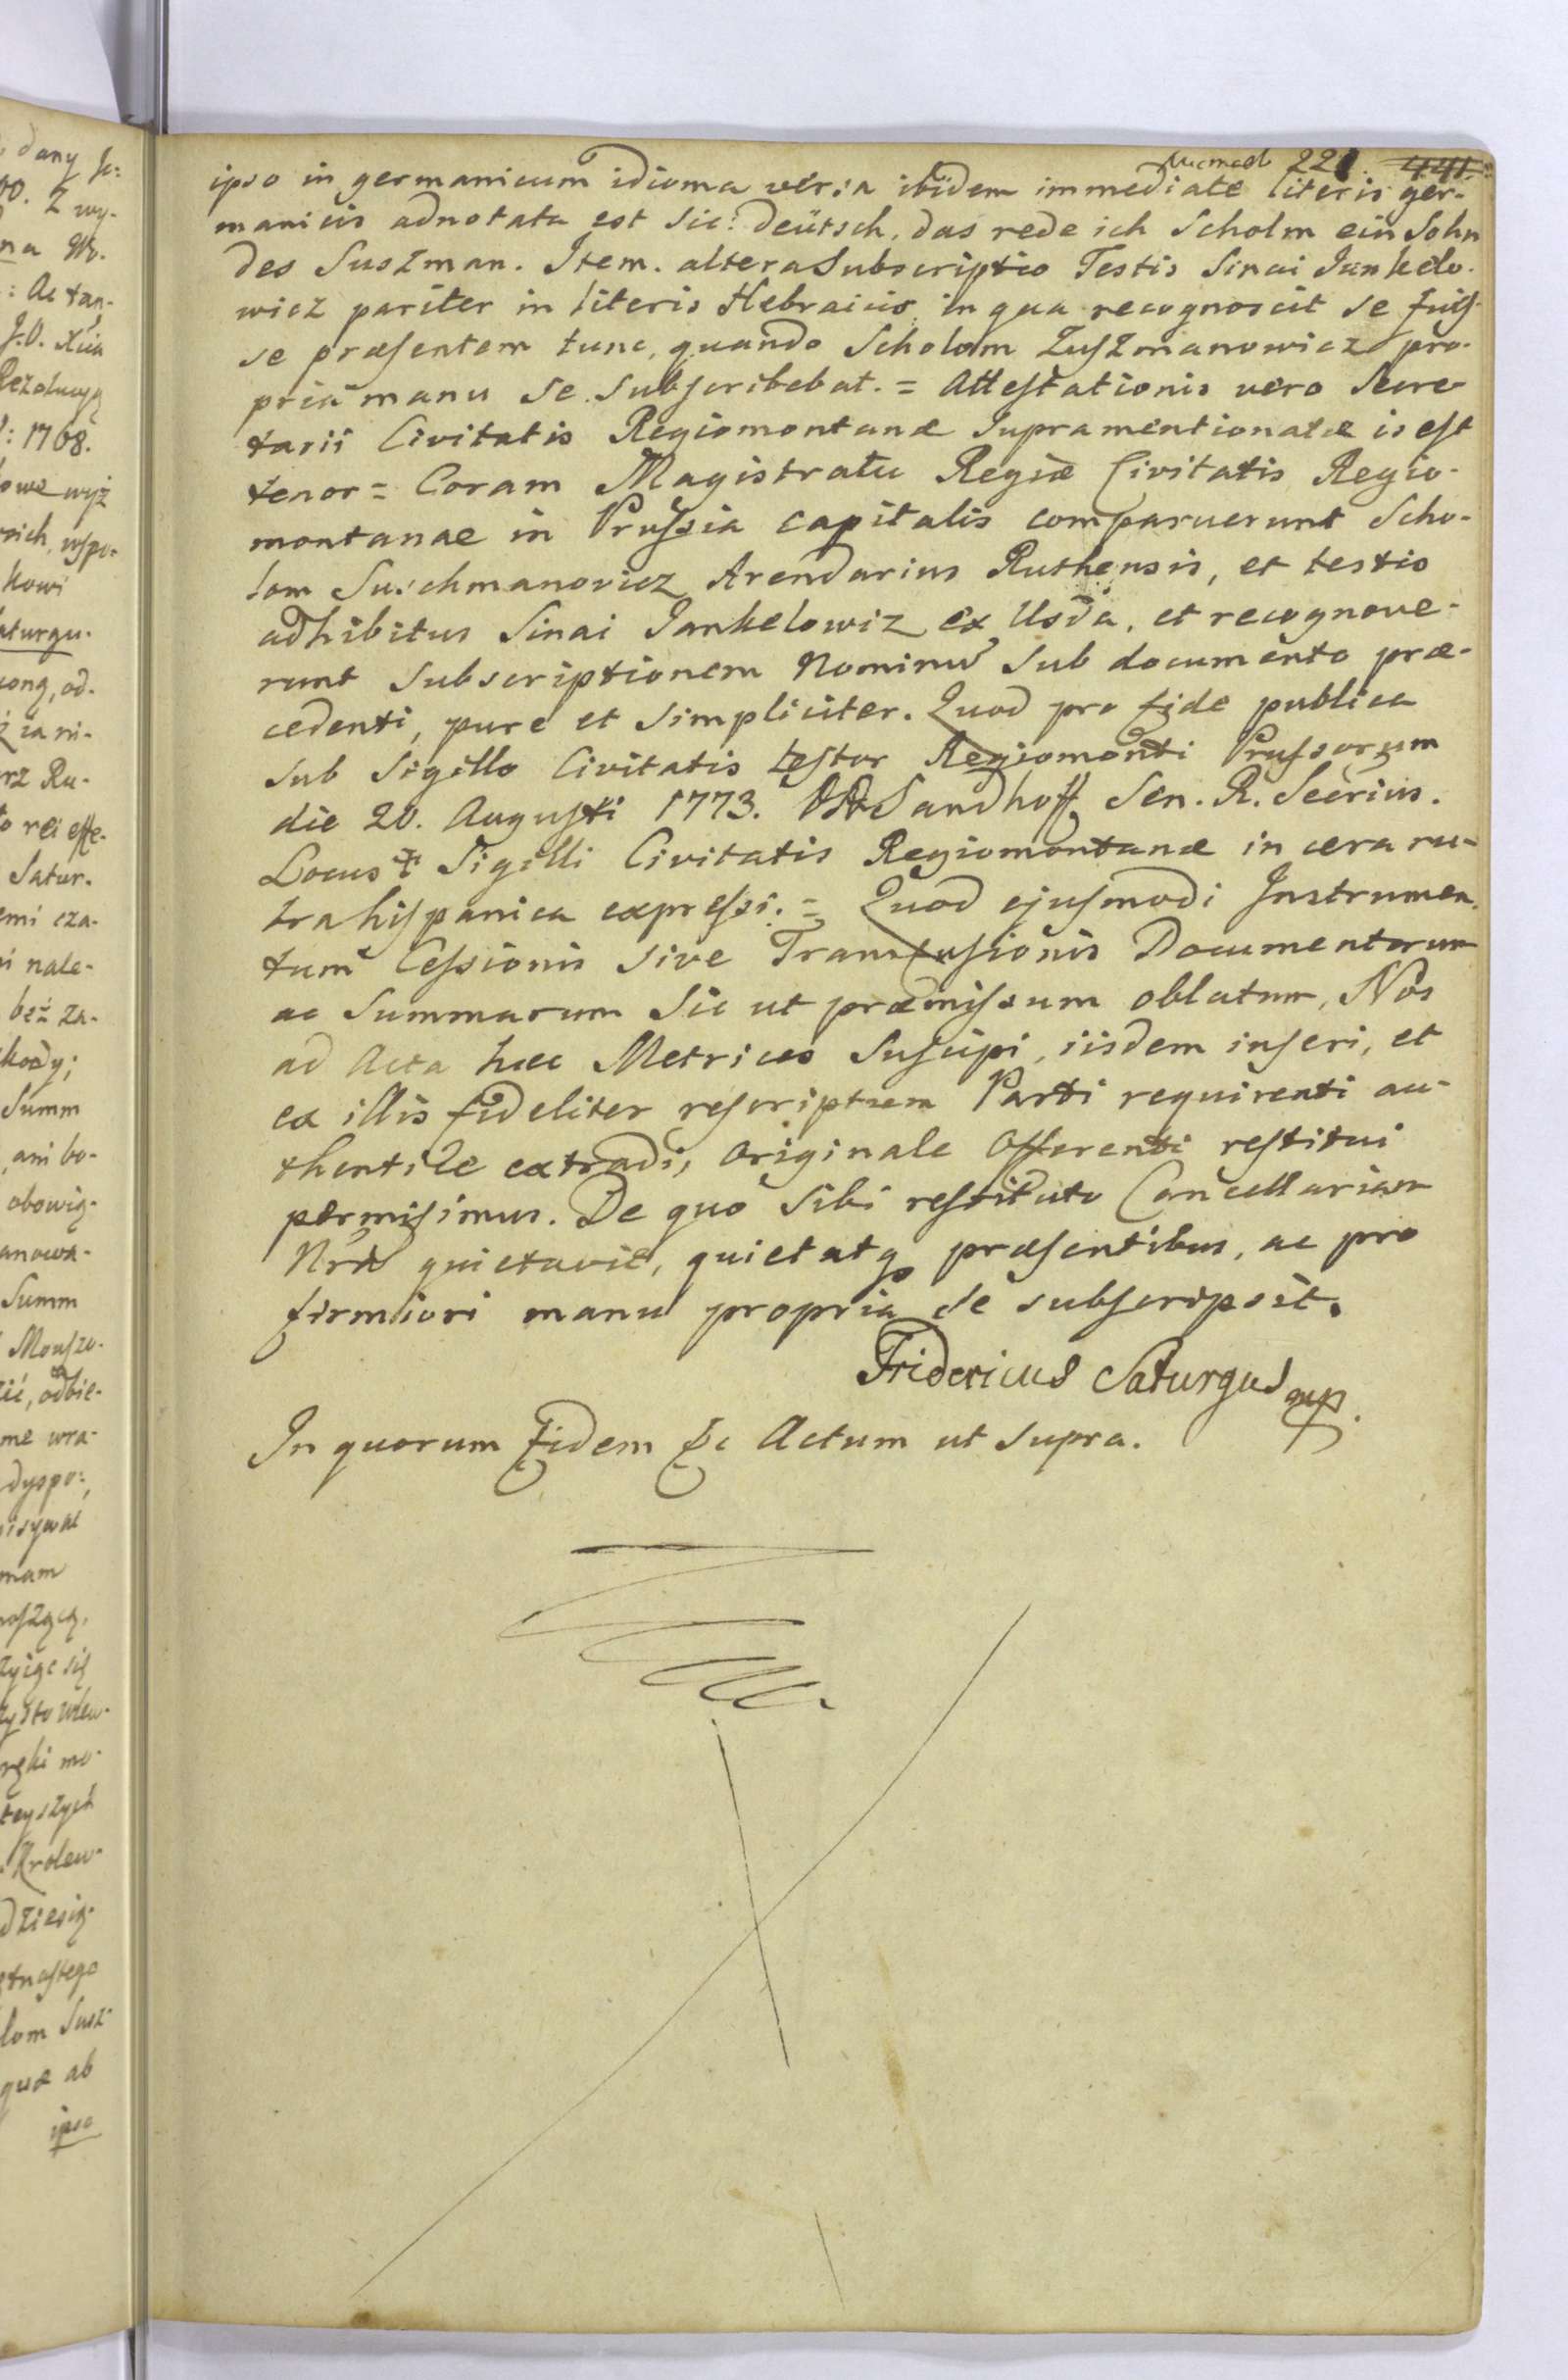 dany
00. Z wy-
na W.
: Actan-
J.O. Xcia
Rezolucyą
: 1768.
wyż
wspo-
kowi
aturgu-
, od-
za ni-
rz Ru-
o rei effe-
Satur-
emi cza-
i nale-
bez za-
kody;
Summ
, ani bo-
obowią-
anowa-
Summ
Mouszo-
, odbie-
me wra-
dyspo:,
isywał
mam
oszącą,
się
ręki mo-
teyszych
Krolew-
dziesią-
etnastego
lom Susz-
quæ ab
ipso
221. 441.
ipso in germanicum idioma versa ibidem immediate literis ger-
manicis adnotata est sic: deütsch, das rede ich Scholm ein Sohn
des Suszman. Item. altera Subscriptio Testis Sinai Jankelo-
wicz pariter in literis Hebraicis, in qua recognoscit se fuis-
se præsentem tunc, quando Scholom Zuszmanowicz pro-
pria manu se subscribebat. = Attestationis vero Secre-
tarii Civitatis Regiomontanæ supramentionatæ is est
tenor = Coram Magistratu Regiæ Civitatis Regio-
montanae in Prussia capitalis comparuerunt Scho-
lom Suschmanovicz Arendarius Ruthensis, et testis
adhibitus Sinai Jankelowiz ex Usda, et recognove-
runt subscriptionem Nominū sub documento præ-
cedenti, pure et simpliciter. Quod pro fide publica
sub Sigillo Civitatis testor Regiomonti Prussorum
die 20. Augusti 1773. Sandhoff Sen. R. Secrius.
Locus Sigilli Civitatis Regiomontanæ in cera ru-
bra hispanica expressi. = Quod ejusmodi Instrumen-
tum Cessionis sive Transfusionis Documentorum
ac Summarum sic ut præmissum oblatum, Nos
ad Acta hæc Metrices suscipi, iisdem inseri, et
ex illis fideliter rescriptum Parti requirenti au-
thentice extradi, originale Offerenti restitui
permisimus. De quo sibi restituto Cancellariam
Nrã quietavit, quietatq præsentibus, ac pro
firmiori manu propria se subscripsit.
Fridericus Saturgus mp.
In quorum fidem &c Actum ut supra.